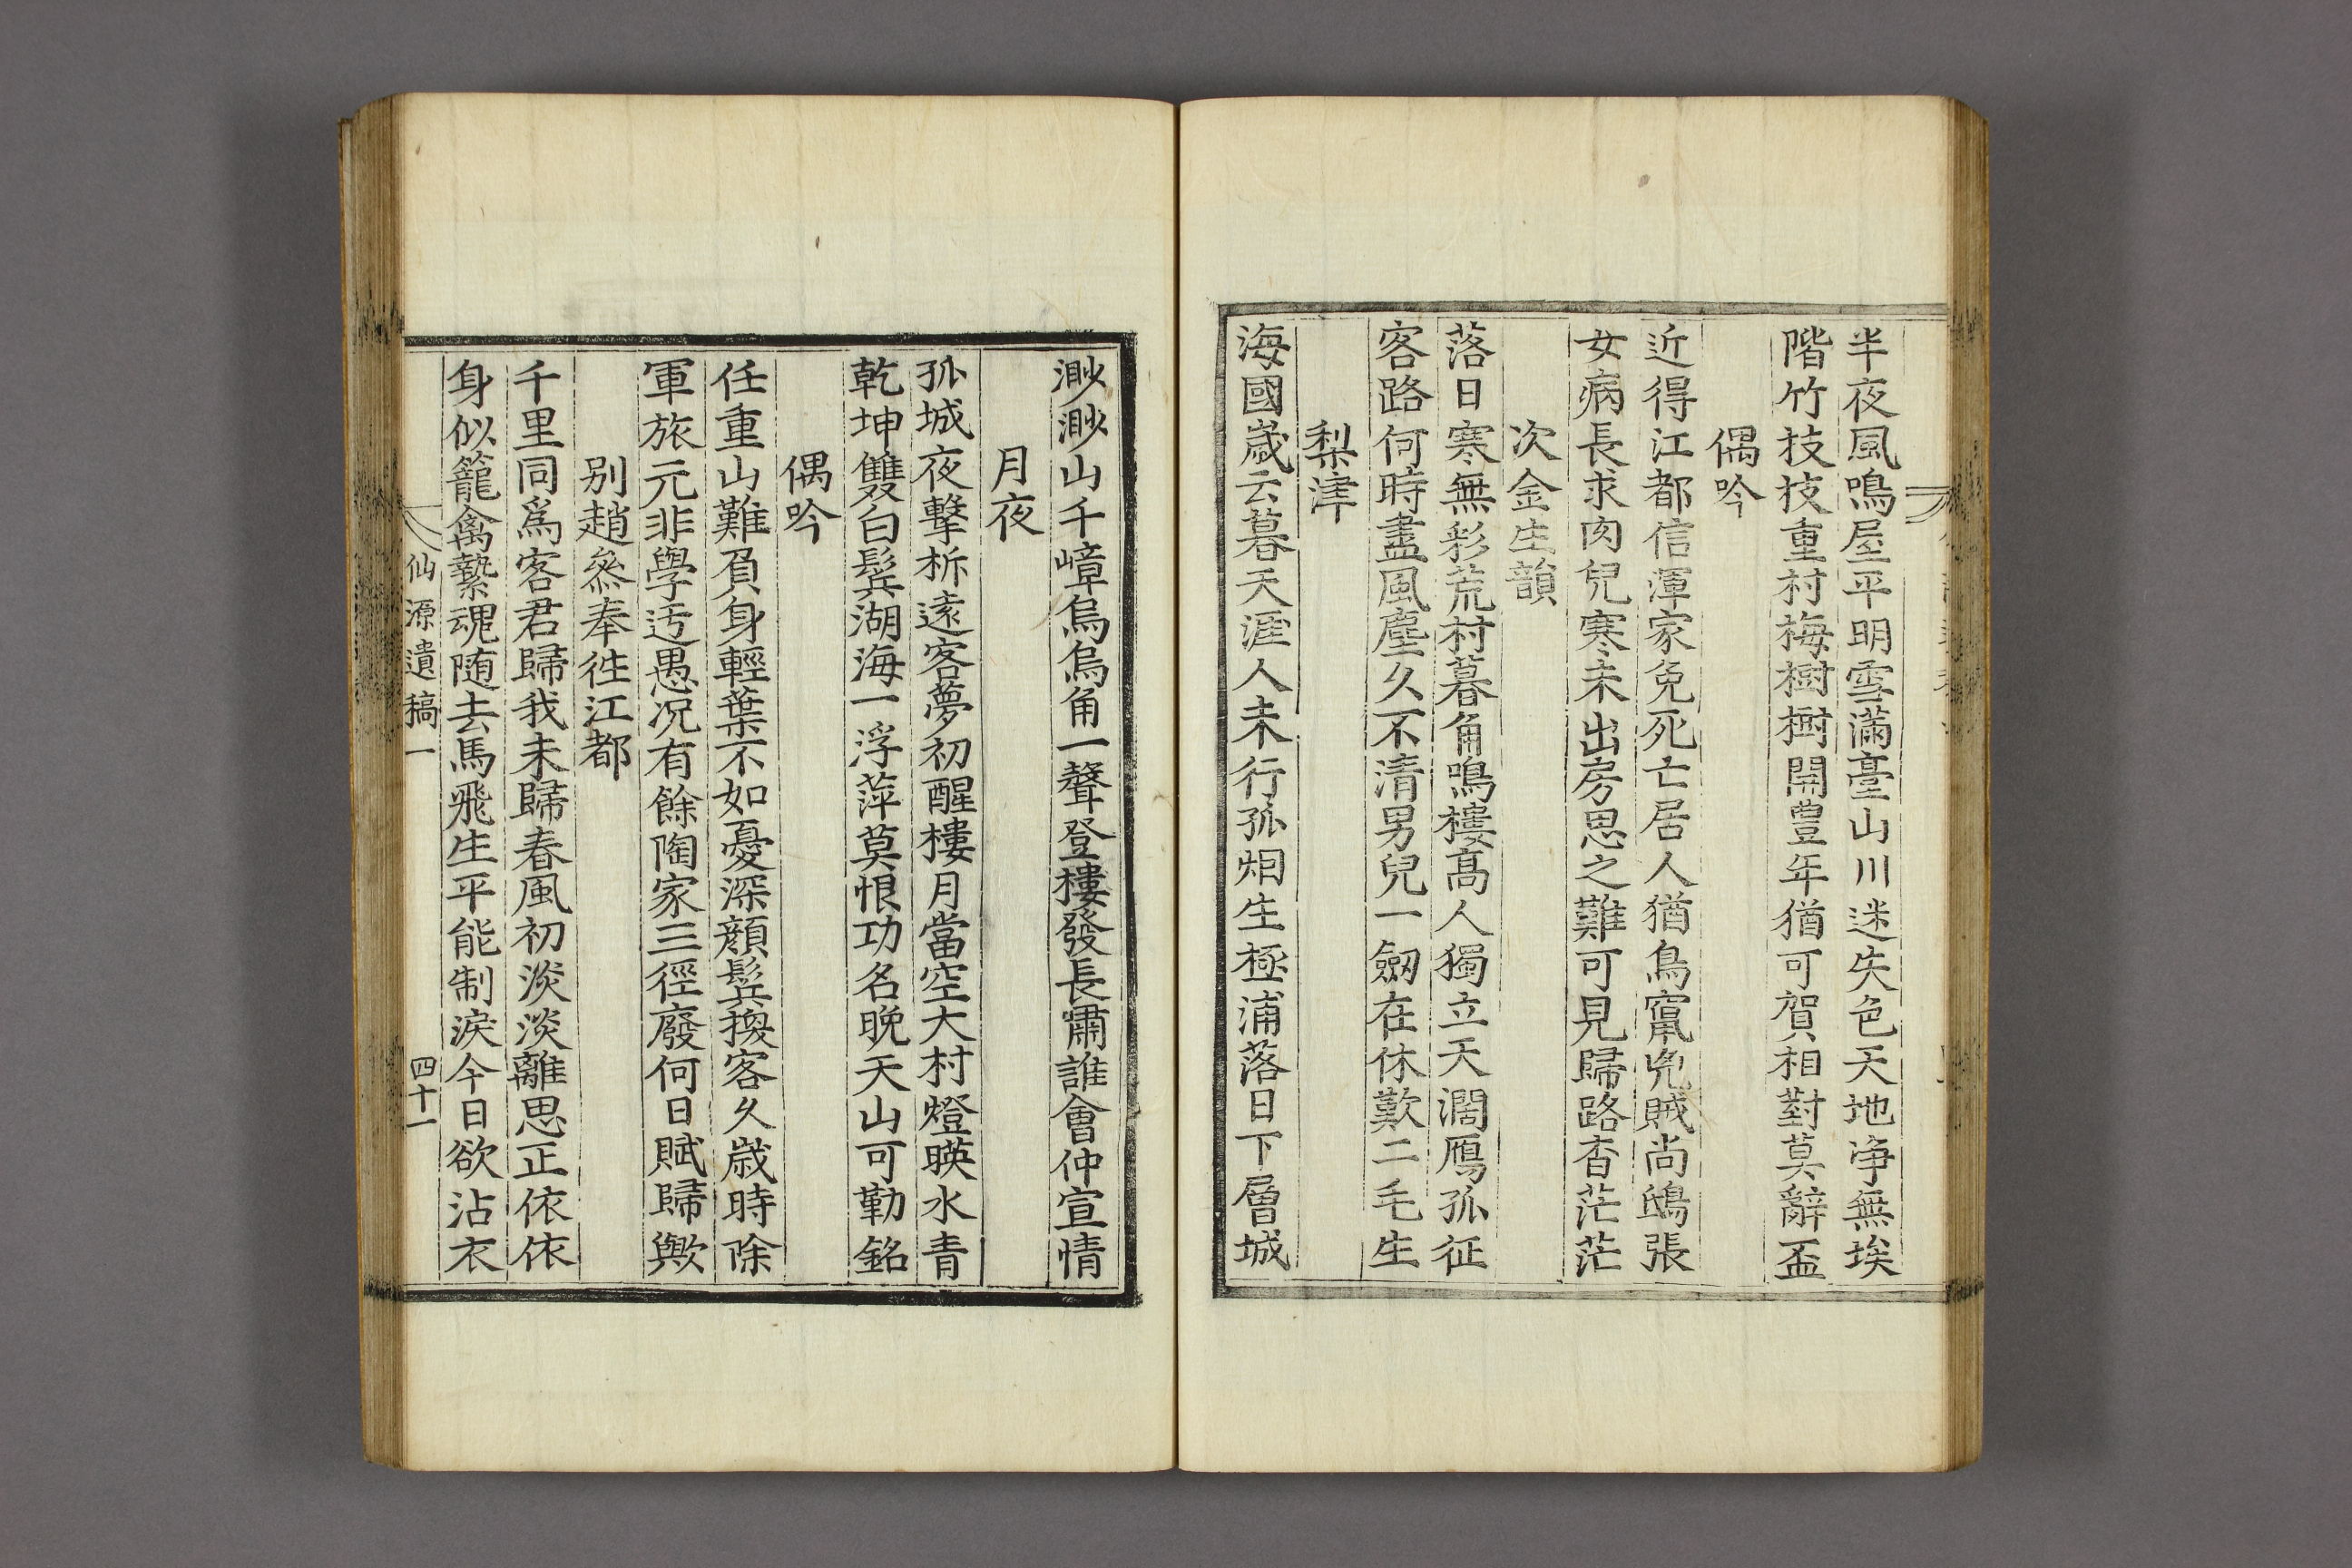 半夜風鳴屋平明雪滿臺山川迷失色天地净無埃
階竹枝枝重村梅樹樹開豊年猶可賀相對莫辭盃
偶吟
近得江都信渾家免死亡居人猶鳥竄兇賊尚鴟張
女病長求肉兒寒未出房思之難可見歸路杳茫茫
次金生韻
落日寒無彩荒村暮角鳴樓髙人獨立天濶鴈孤征
客路何時盡風塵久不清男兒一劒在休歎二毛生
梨津
海國歲云暮天涯人未行孤烟生極浦落日下層城
渺渺山千嶂烏烏角一聲登樓發長嘯誰會仲宣情
月夜
孤城夜擊柝遠客夢初醒樓月當空大村燈暎水青
乾坤雙白鬂湖海一浮萍莫恨功名晚天山可勒銘
偶吟
任重山難負身輕葉不如憂深顔鬂換客久歲時除
軍旅元非學迃愚况有餘陶家三徑廢何日賦歸歟
别趙叅奉徃江都
千里同爲客君歸我未歸春風初淡淡離思正依依
身似籠禽縶魂随去馬飛生平能制淚今日欲沾衣
仙源遺稿一
四十一